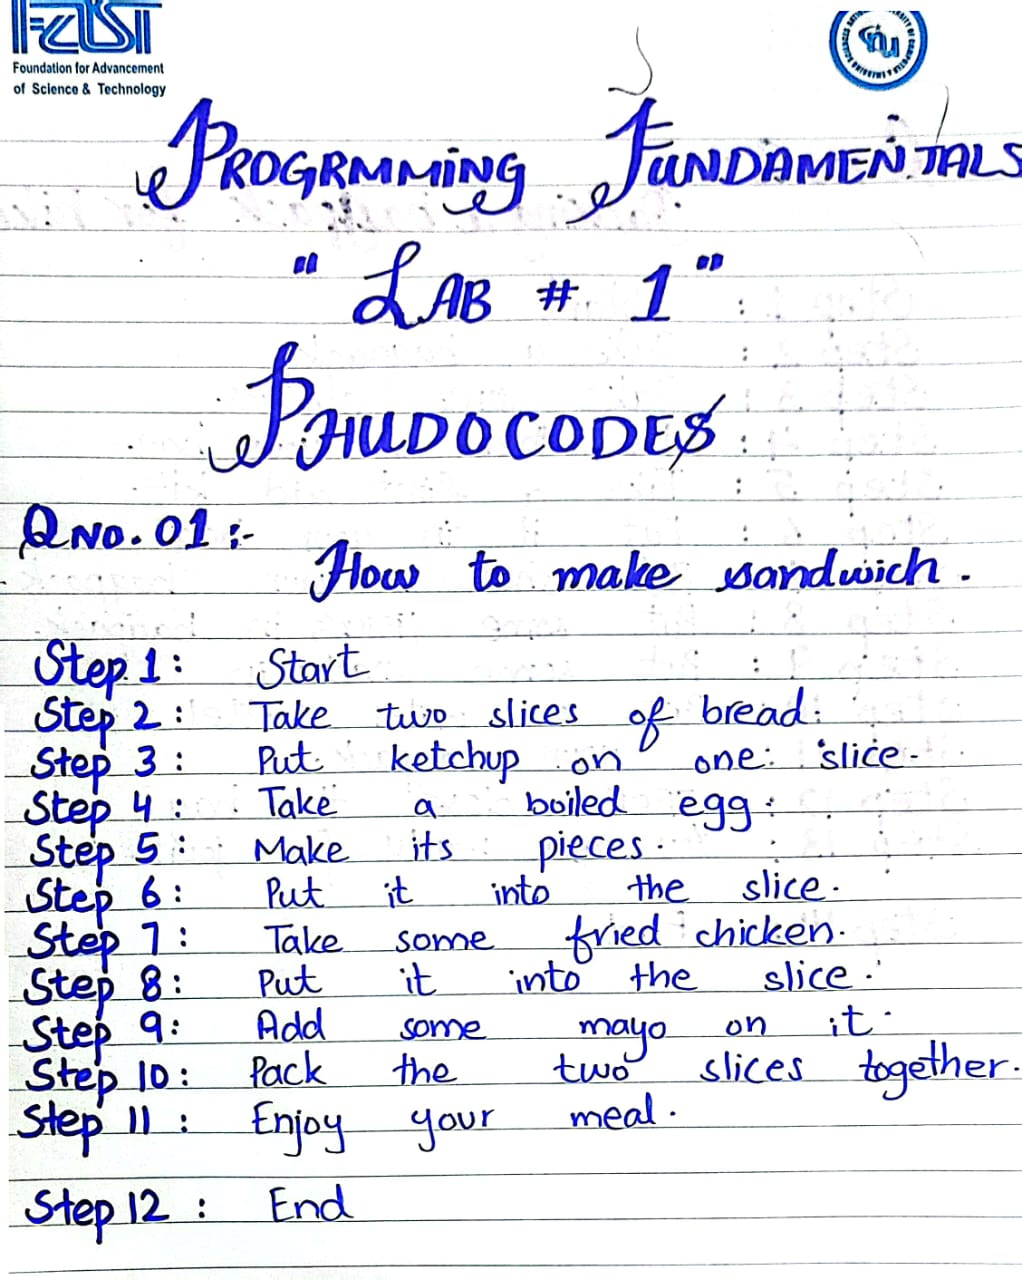 FAST
Foundation for Advancement
of Science & Technology
PROGRMMING FUNDAMENTALS
" LAB # 1 "
PSHUDOCODES
Q NO. 01 :-
How to make sandwich .
Step 1 : Start
Step 2 : Take two slices of bread.
Step 3 : Put ketchup on one slice.
Step 4 : Take a boiled egg.
Step 5 : Make its pieces.
Step 6 : Put it into the slice.
Step 7 : Take some fried chicken.
Step 8 : Put it into the slice.
Step 9 : Add some mayo on it.
Step 10 : Pack the two slices together.
Step 11 : Enjoy your meal.
Step 12 : End